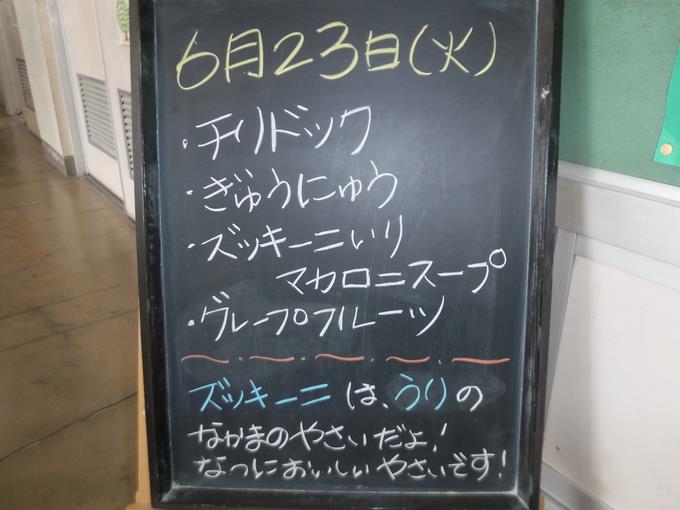 6月23日(火)
・チリドック
・ぎゅうにゅう
・ズッキーニいり
マカロニスープ
・グレープフルーツ
ズッキーニは、うりの
なかまのやさいだよ!
なつにおいしいやさいです!